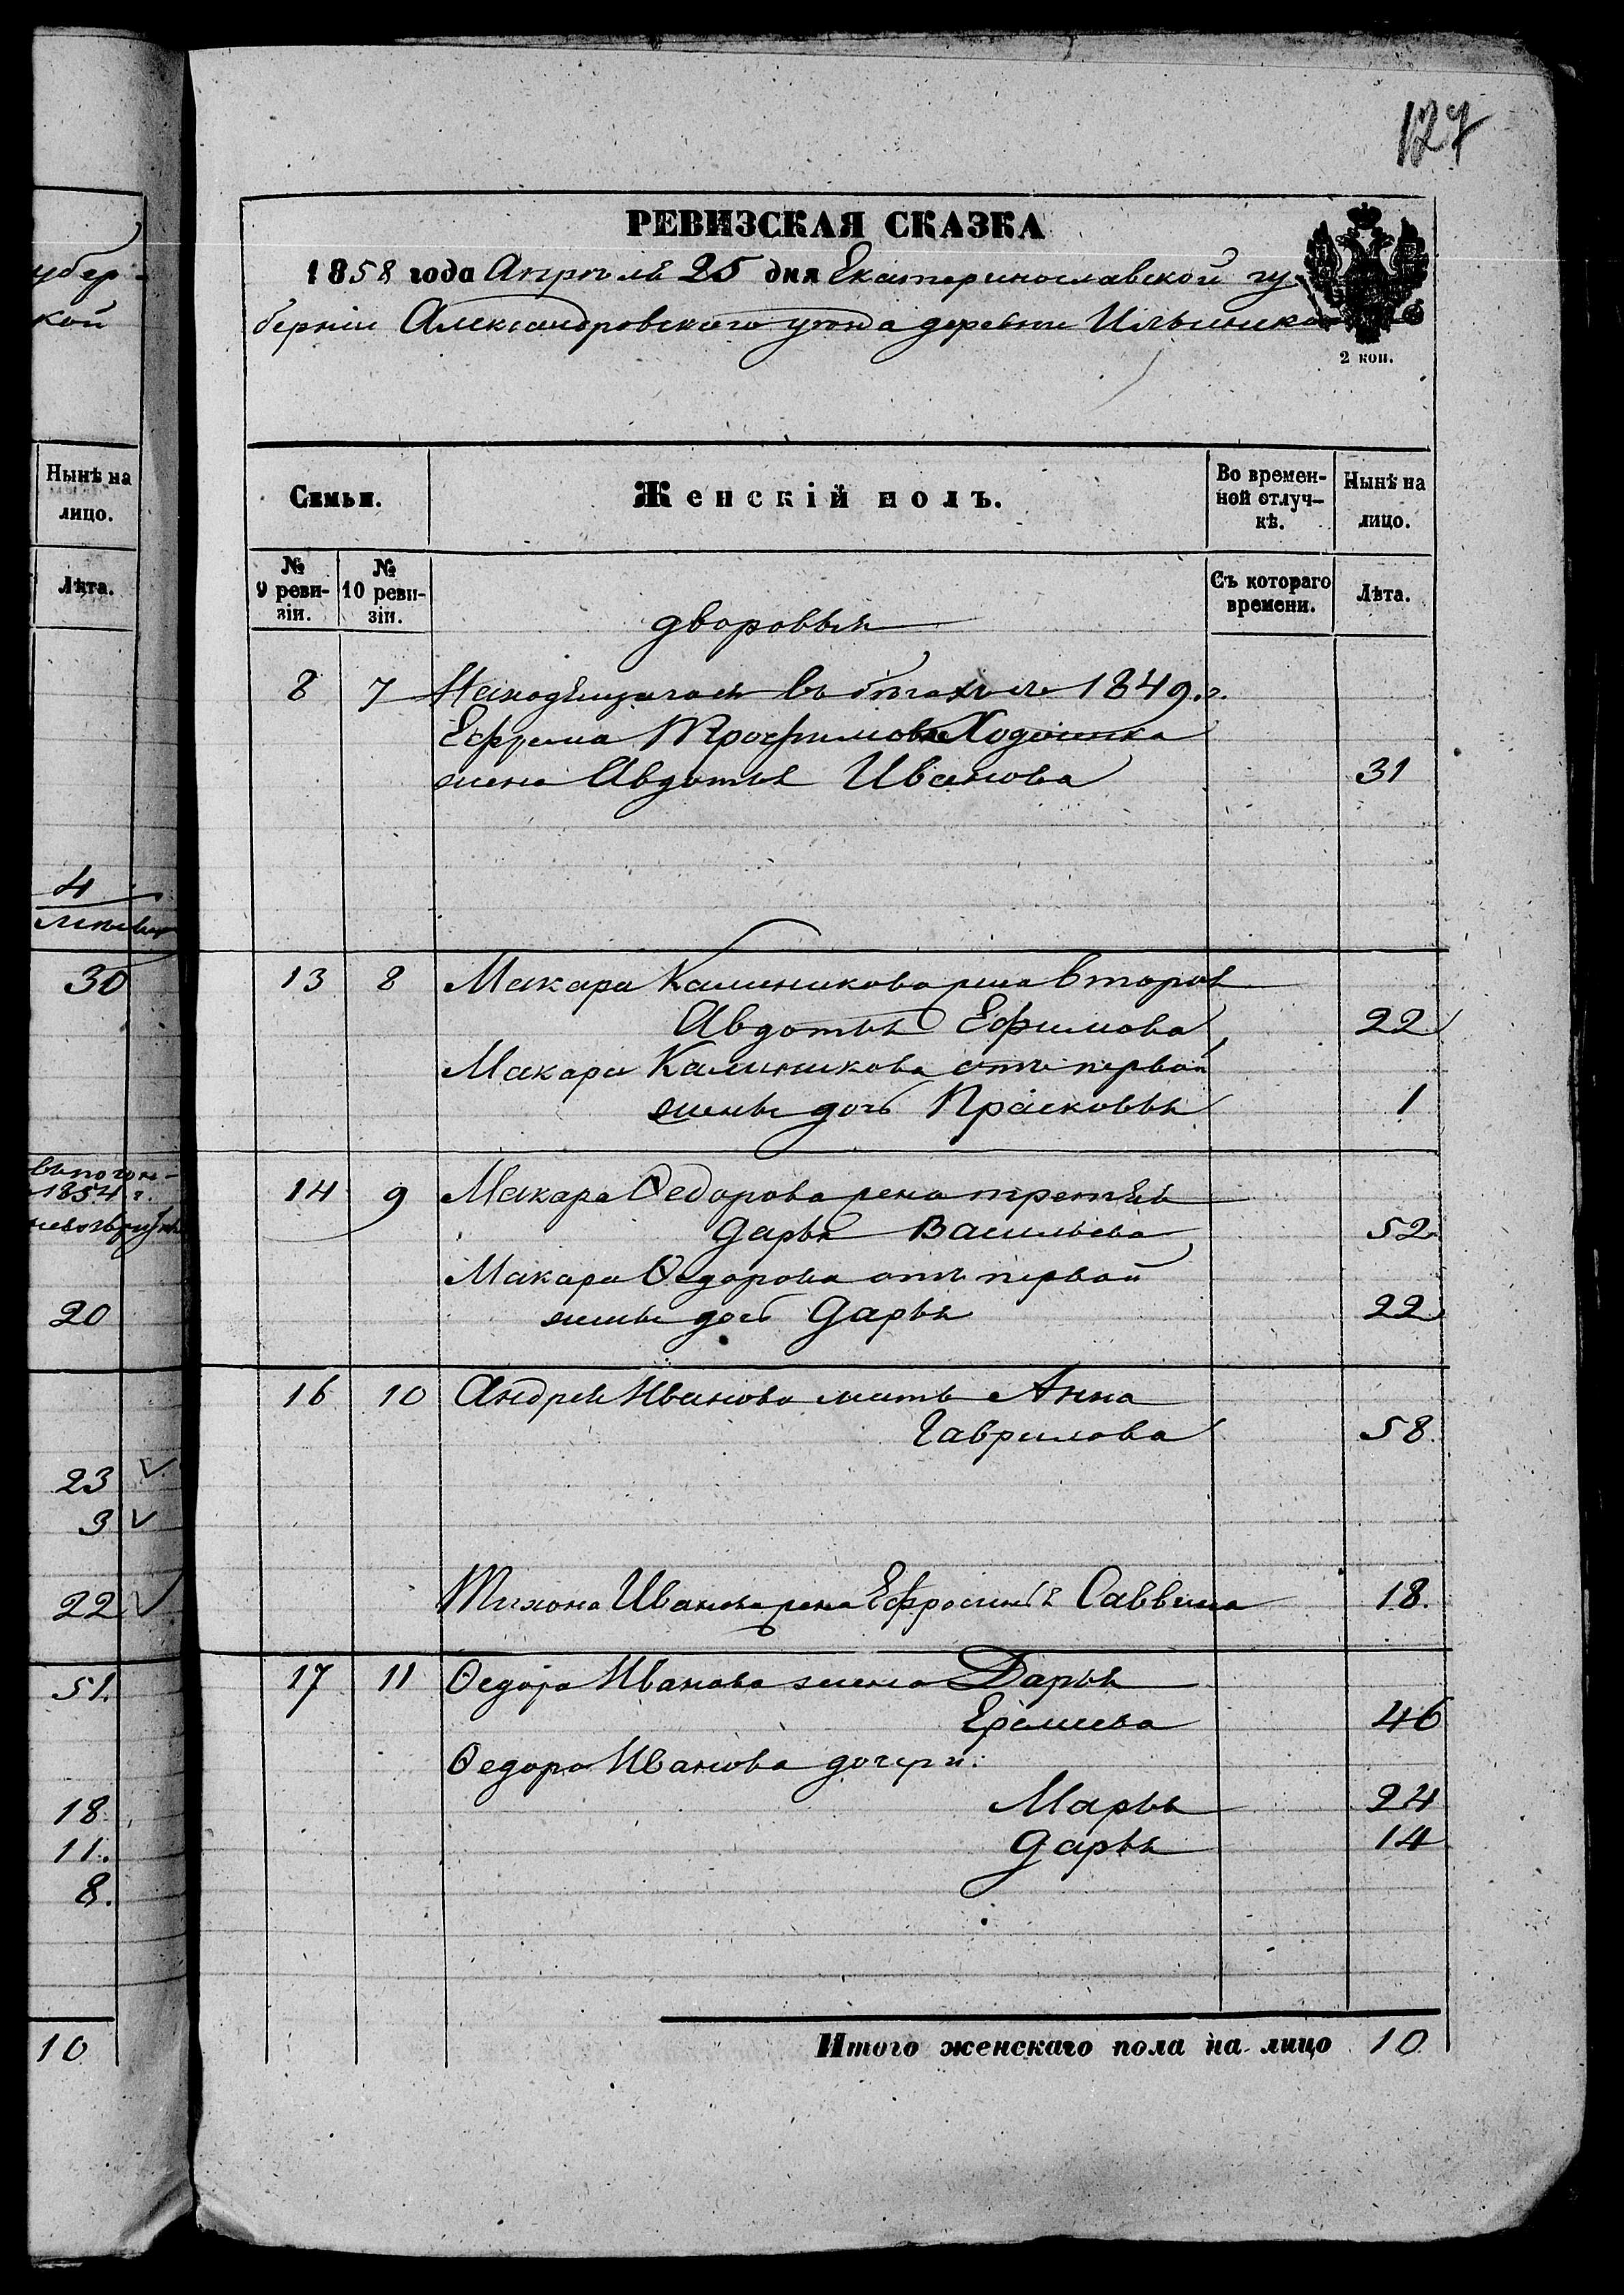 убер-
кой
Нынѣ на
лицо.
Лѣта.
4
30
1854 г.
20
23
3
22
51.
18
11.
8.
10
127
РЕВИЗСКАЯ СКАЗКА
1858 года Апрѣля 25 дня Екатеринославской гу-
берніи Александровскаго уѣзда деревни
2 коп.
Семьи.
Женскій полъ.
Во времен-
ной отлуч-
кѣ.
Нынѣ на
лицо.
№
9 реви-
зіи.
№
10 реви-
зіи.
Съ котораго
времени.
Лѣта.
дворовыя
8 7 Находящагося въ бѣгахъ съ 1849 г.
Ефрема Трофимова
жена Авдотья Иванова 31
13 8 Макара Калиникова жена вторая
Авдотья Ефимова 22
Макара Калиникова отъ первой
жены дочь Прасковья 1
14 9 Макара Ѳедорова жена третья
Дарья Васильева 52
Макара Ѳедорова отъ первой
жены дочь Дарья 22
16 10 Андрея Иванова мать Анна
Гаврилова 58
Тихона Иванова жена Ефросинья Саввина 18.
17 11 Ѳедора Иванова жена Дарья
Еремеева 46
Ѳедора Иванова дочери:
Марья 24
Дарья 14
Итого женскаго пола на лицо 10